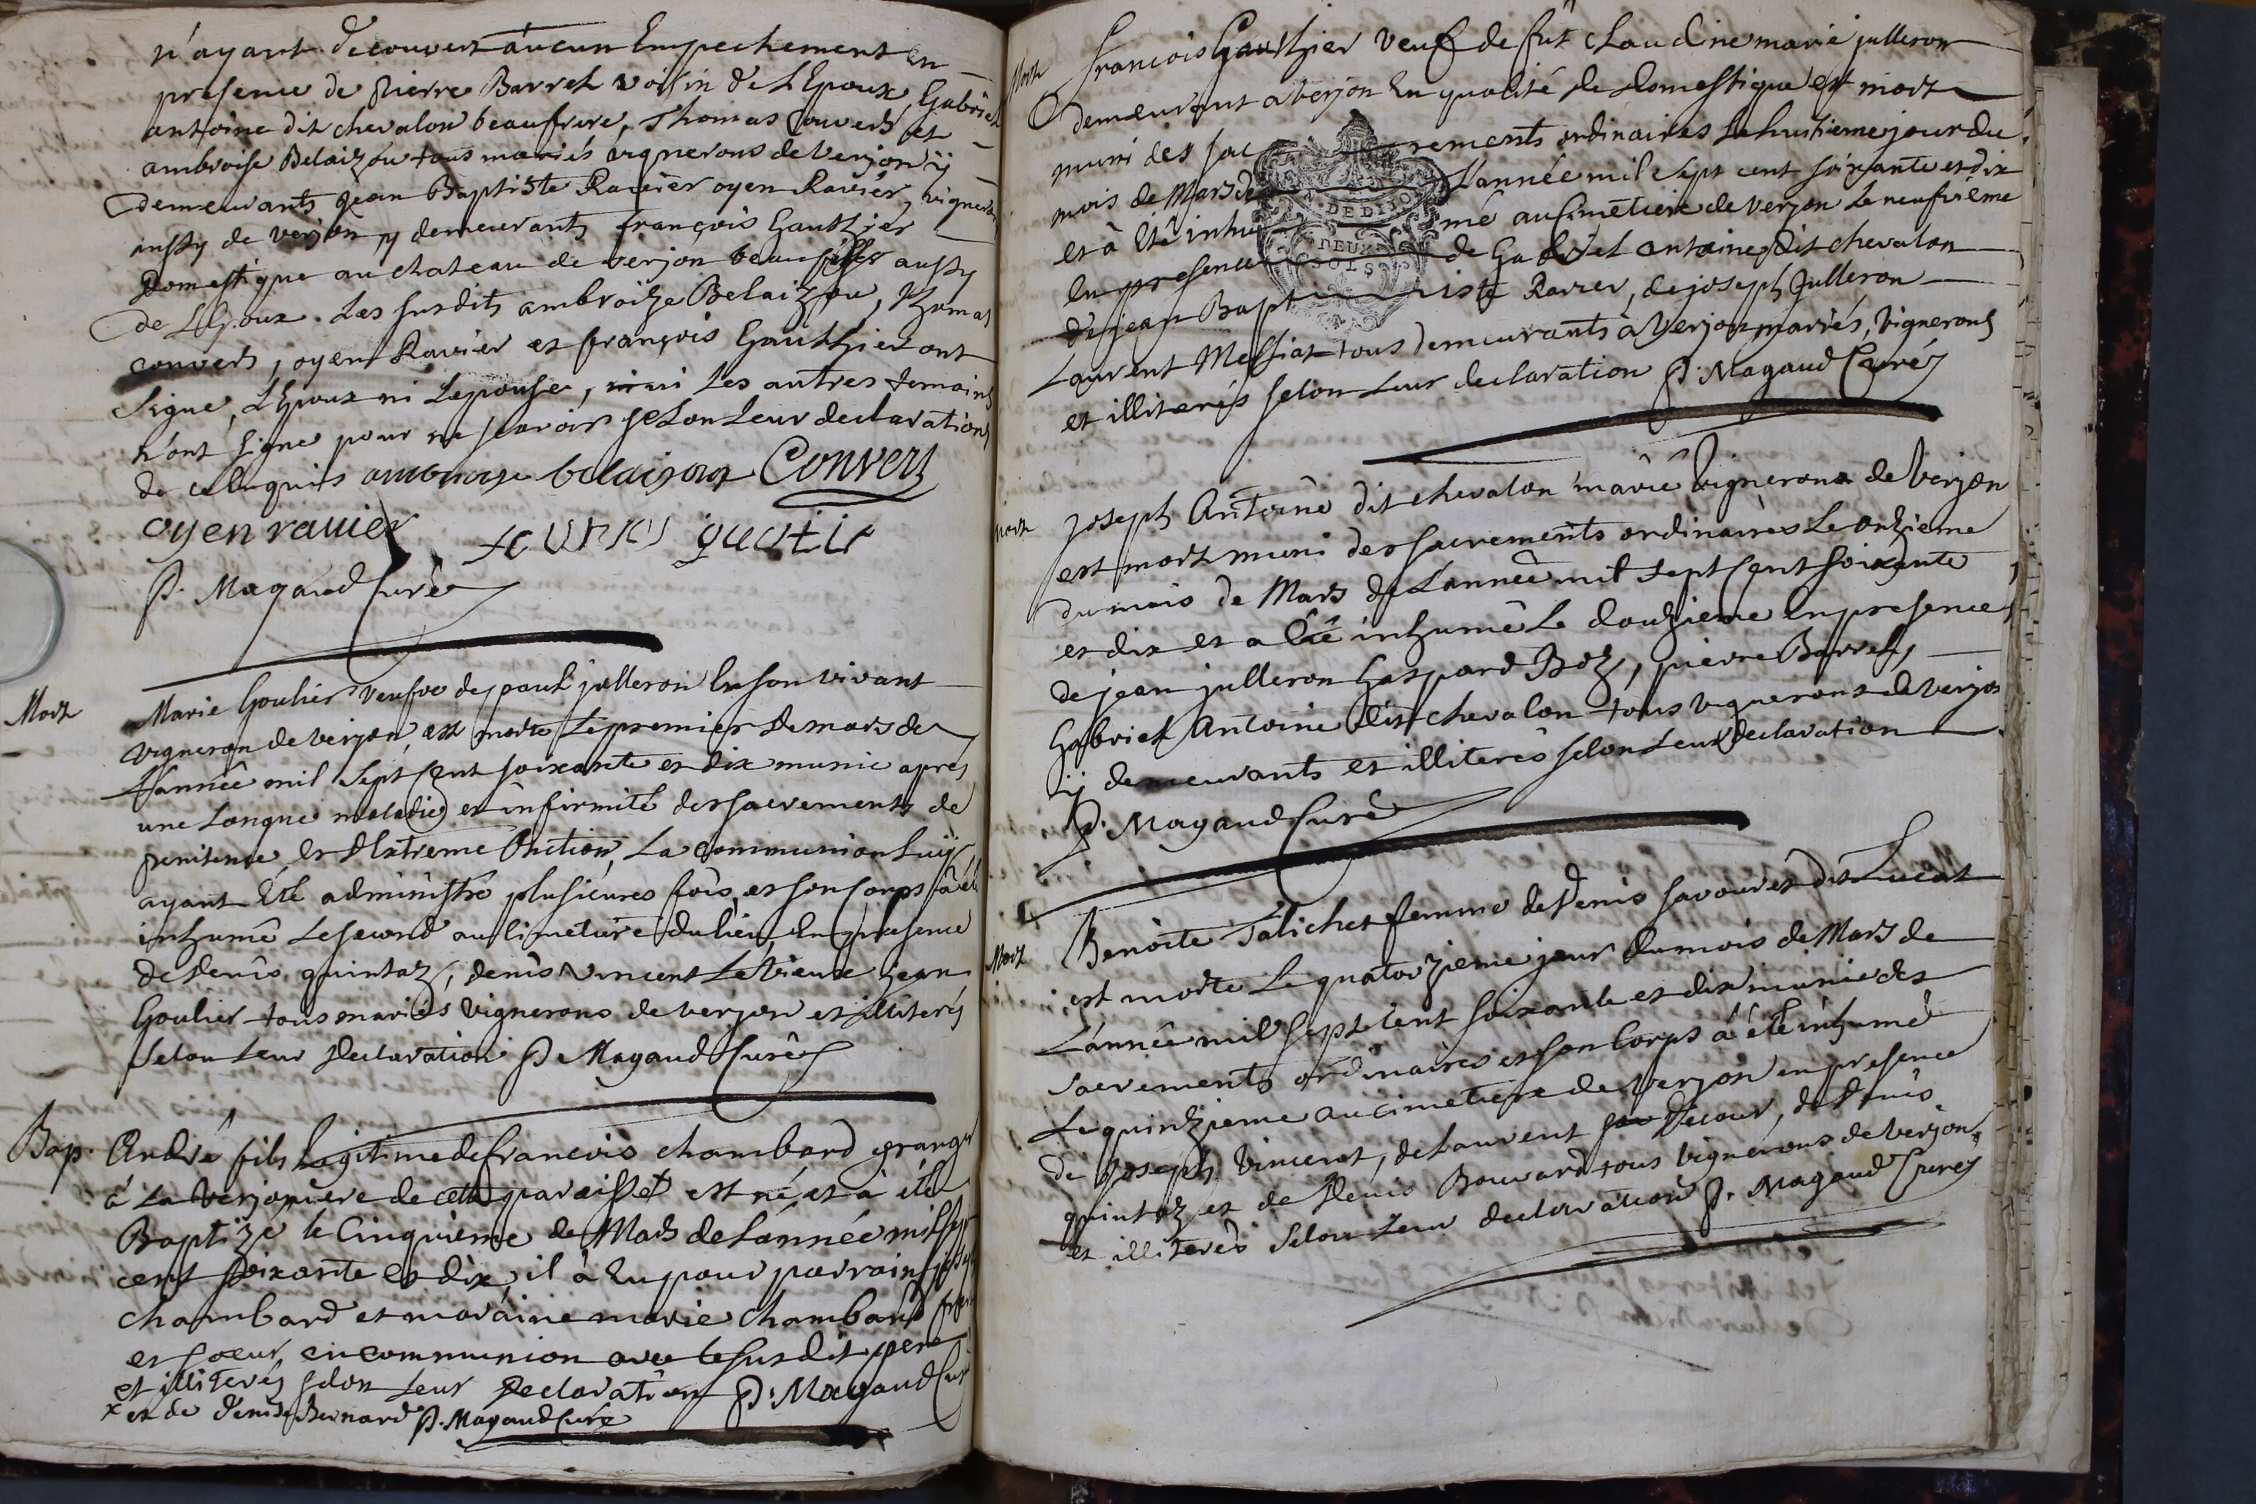 n'ayant decouvert aucun Empechement en
presence de pierre Barret voisin de L'Epoux, Gabriel
antoine dit chevalon beaufrere, Thomas Convers et
ambroise Belaizou tous mariés vignerons de verjon ÿ
demeurants jean Baptiste Ravier oyen Ravier, vignerons
aussy de verjon y demeurants françois Gauthier
Domestique au chateau de verjon beau aussy
de L'Epoux. Les susdits ambroize Belaizou, Thomas
convers, oyen Ravier et françois Gauthier ont
signe, L'Epoux ni Lepouse, ni les autres temoins
n'ont signe pour ne scavoir selon leur declarations
de ce enquis ambroise belaizoux Convers
oyen ravier gautie
P. Magaud Curé
Mort
Marie Goulier veufve de paul julleron En son vivant
vigneron de verjon, est morte Le premier de mars de
L'année mil sept Cent soixante et dix munie apres
une Longue maladie et infirmité des sacrements de
penitence et d'Extreme Onction, La communion Luÿ
ayant Eté administré plusieures fois et son corps a été
inhumé Le second au Cimetiere du lieu, En presence
de denis quintaz, denis vincent Le vieux jean
Goulier tous mariés vignerons de verjon et illiterés
selon Leur declaration P. Magaud Curé
Bap.
André fils Legitime de francois chambard granger
à La verjoniere de cette paroisse est né et à été
Baptizé le Cinquieme de Mars de L'année mil sept
cent soixante et dix, il à Eu pour parrain
chambard et maraine marie chambard frere
et soeur, en communion avec le susdit pere
et illiterés selon Leur Declaration P. Magaud Curé
x et de denise Bernard P. Magaud Curé
Mort
francois Gauthier veuf de fut Claudine marie julleron
demeurant a verjon En qualité de domestique est mort
muni des sacrements ordinaires Le huitieme jour du
mois de Mars de L'année mil sept cent soixante et dix
et à été inhumé au Cimetiere de verjon Le neufvieme
En presence de Gabriel antoine dit chevalon
de jean Baptiste Ravier, de joseph Julleron
Laurent Messiat tous demeurants à verjon mariés, vignerons
et illiterés selon Leur declaration P. Magaud Curé
G. DE DIJON
DEUX
SOLS
Mort
Joseph Antoine dit chevalon marié vigneron de verjon
est mort muni des sacrements ordinaires Le onzieme
du mois de Mars de L'année mil sept Cent soixante
et dix et a été inhumé Le douzieme En presence
de jean julleron Gaspard Boz, pierre Barret,
Gabriel Antoine dit chevalon tous vignerons de verjon
ÿ demeurants et illiterés selon Leur declaration
P. Magaud Curé
Mort
Benoite Talichet femme de denis savouret dit Lucat
est morte Le quatorzieme jour du mois de Mars de
L'année mil sept Cent soixante et dix munie des
sacrements ordinaires et son Corps à été inhumé
Le quinzieme au cimetiere de verjon en presence
de joseph vincent, de Laurent Decour, de denis
quintaz et de denis Bouvard tous vignerons de verjon
et illiterés selon Leur declaration P. Magaud Curé